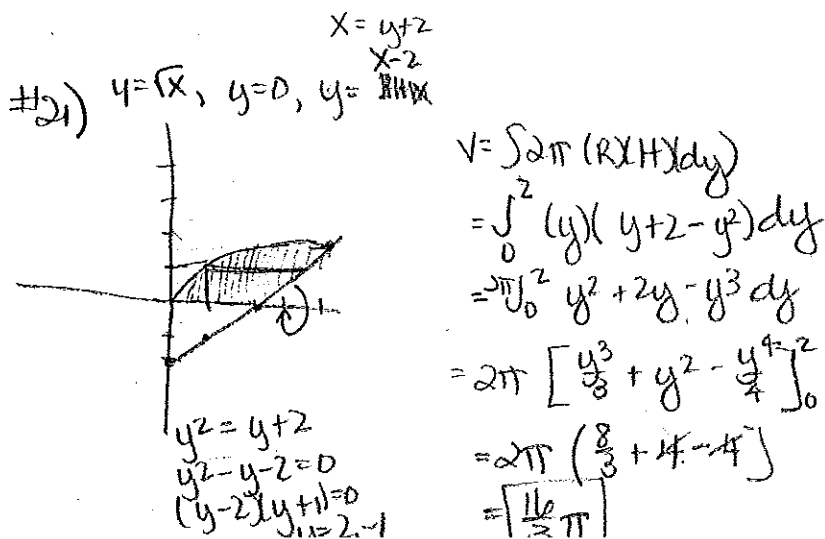 x = y+2
x-2
#21) y=√x, y=0, y=
V= ∫2π (R)(H)(dy)
= ∫₀² (y)( y+2 - y²) dy
= 2π∫₀² y² + 2y - y³ dy
= 2π [ y³/3 + y² - y⁴/4 ]₀²
= 2π ( 8/3 + 4 - 4 )
= 16/3 π
y² = y+2
y² - y - 2 = 0
(y-2)(y+1) = 0
y = 2, -1